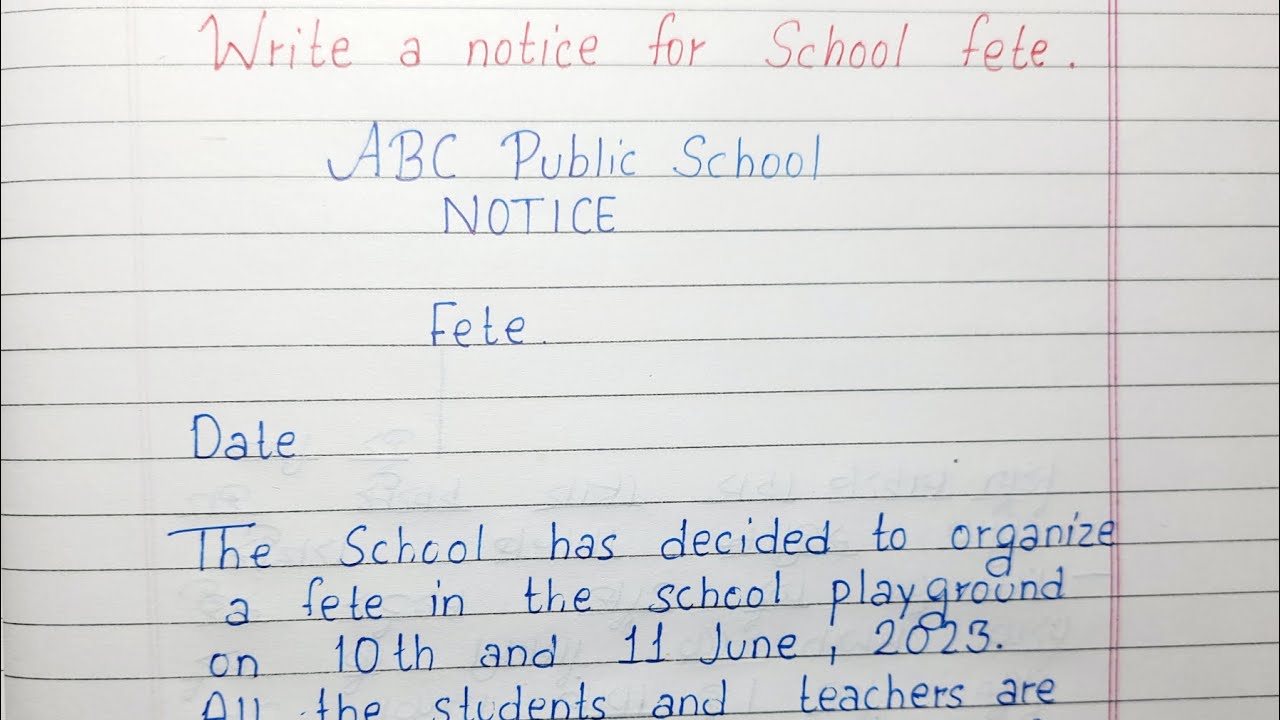 Write a notice for School fete.
ABC Public School
NOTICE
Fete.
Date
The School has decided to organize
a fete in the school playground
on 10th and 11 June, 2023.
All the students and teachers are